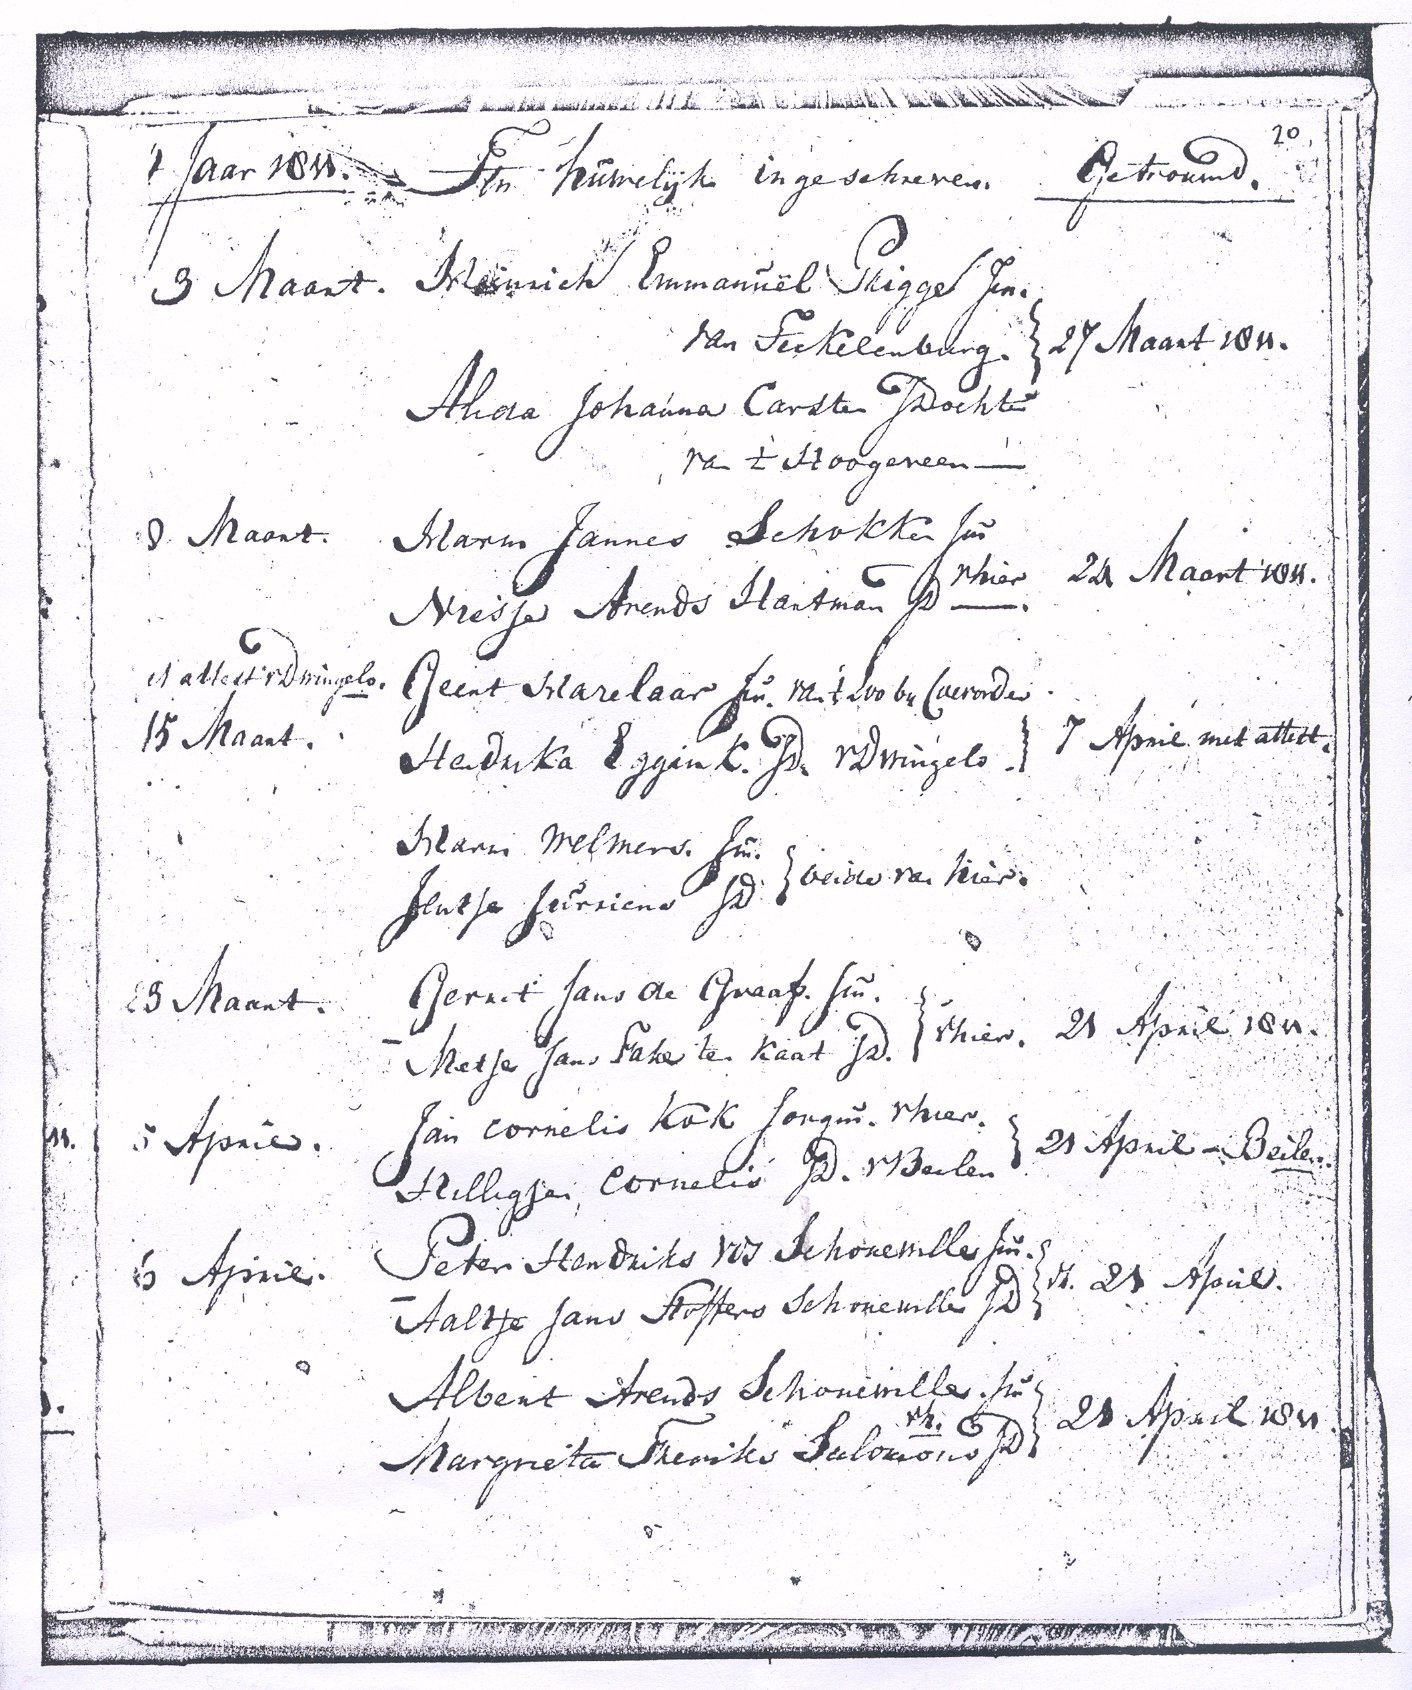 20
't Jaar 1811. In huwelijk ingeschreven. Getrouwd.
3 Maart. Heinrich Emmanuël Prigge Jm.
van Teekelenburg. } 27 Maart 1811.
Alida Johanna Carsten JDochter
van 't Hoogeveen —
8 Maart. Harm Jannes Schokker Jm
Nrisje Arends Hartman JD vhier. 24 Maart 1811.
attest v Dwingelo. Geert Hazelaar Jm. van 't Loo bij Coevorden
15 Maart. Hendrika Eggink. JD. v Dwingelo. } 7 April met attest.
Harm Welmers. Jm.
Jentje Jurriens JD } beide van hier.
23 Maart. Gerrit Jans de Graaf. Jm.
Metje Jans Take ten Kaat JD. } vhier. 21 April 1811.
5 April. Jan Cornelis Kok Jongm. vhier.
Hilligjen Cornelis JD. v Beilen } 21 April - Beilen.
6 April. Peter Hendriks Vos Schonewille Jm.
Aaltje Jans Stoffers Schonewille JD } vh. 21 April.
Albert Arends Schonewille. Jm
Margrieta Freriks Salomons JD vh. } 21 April 1811.